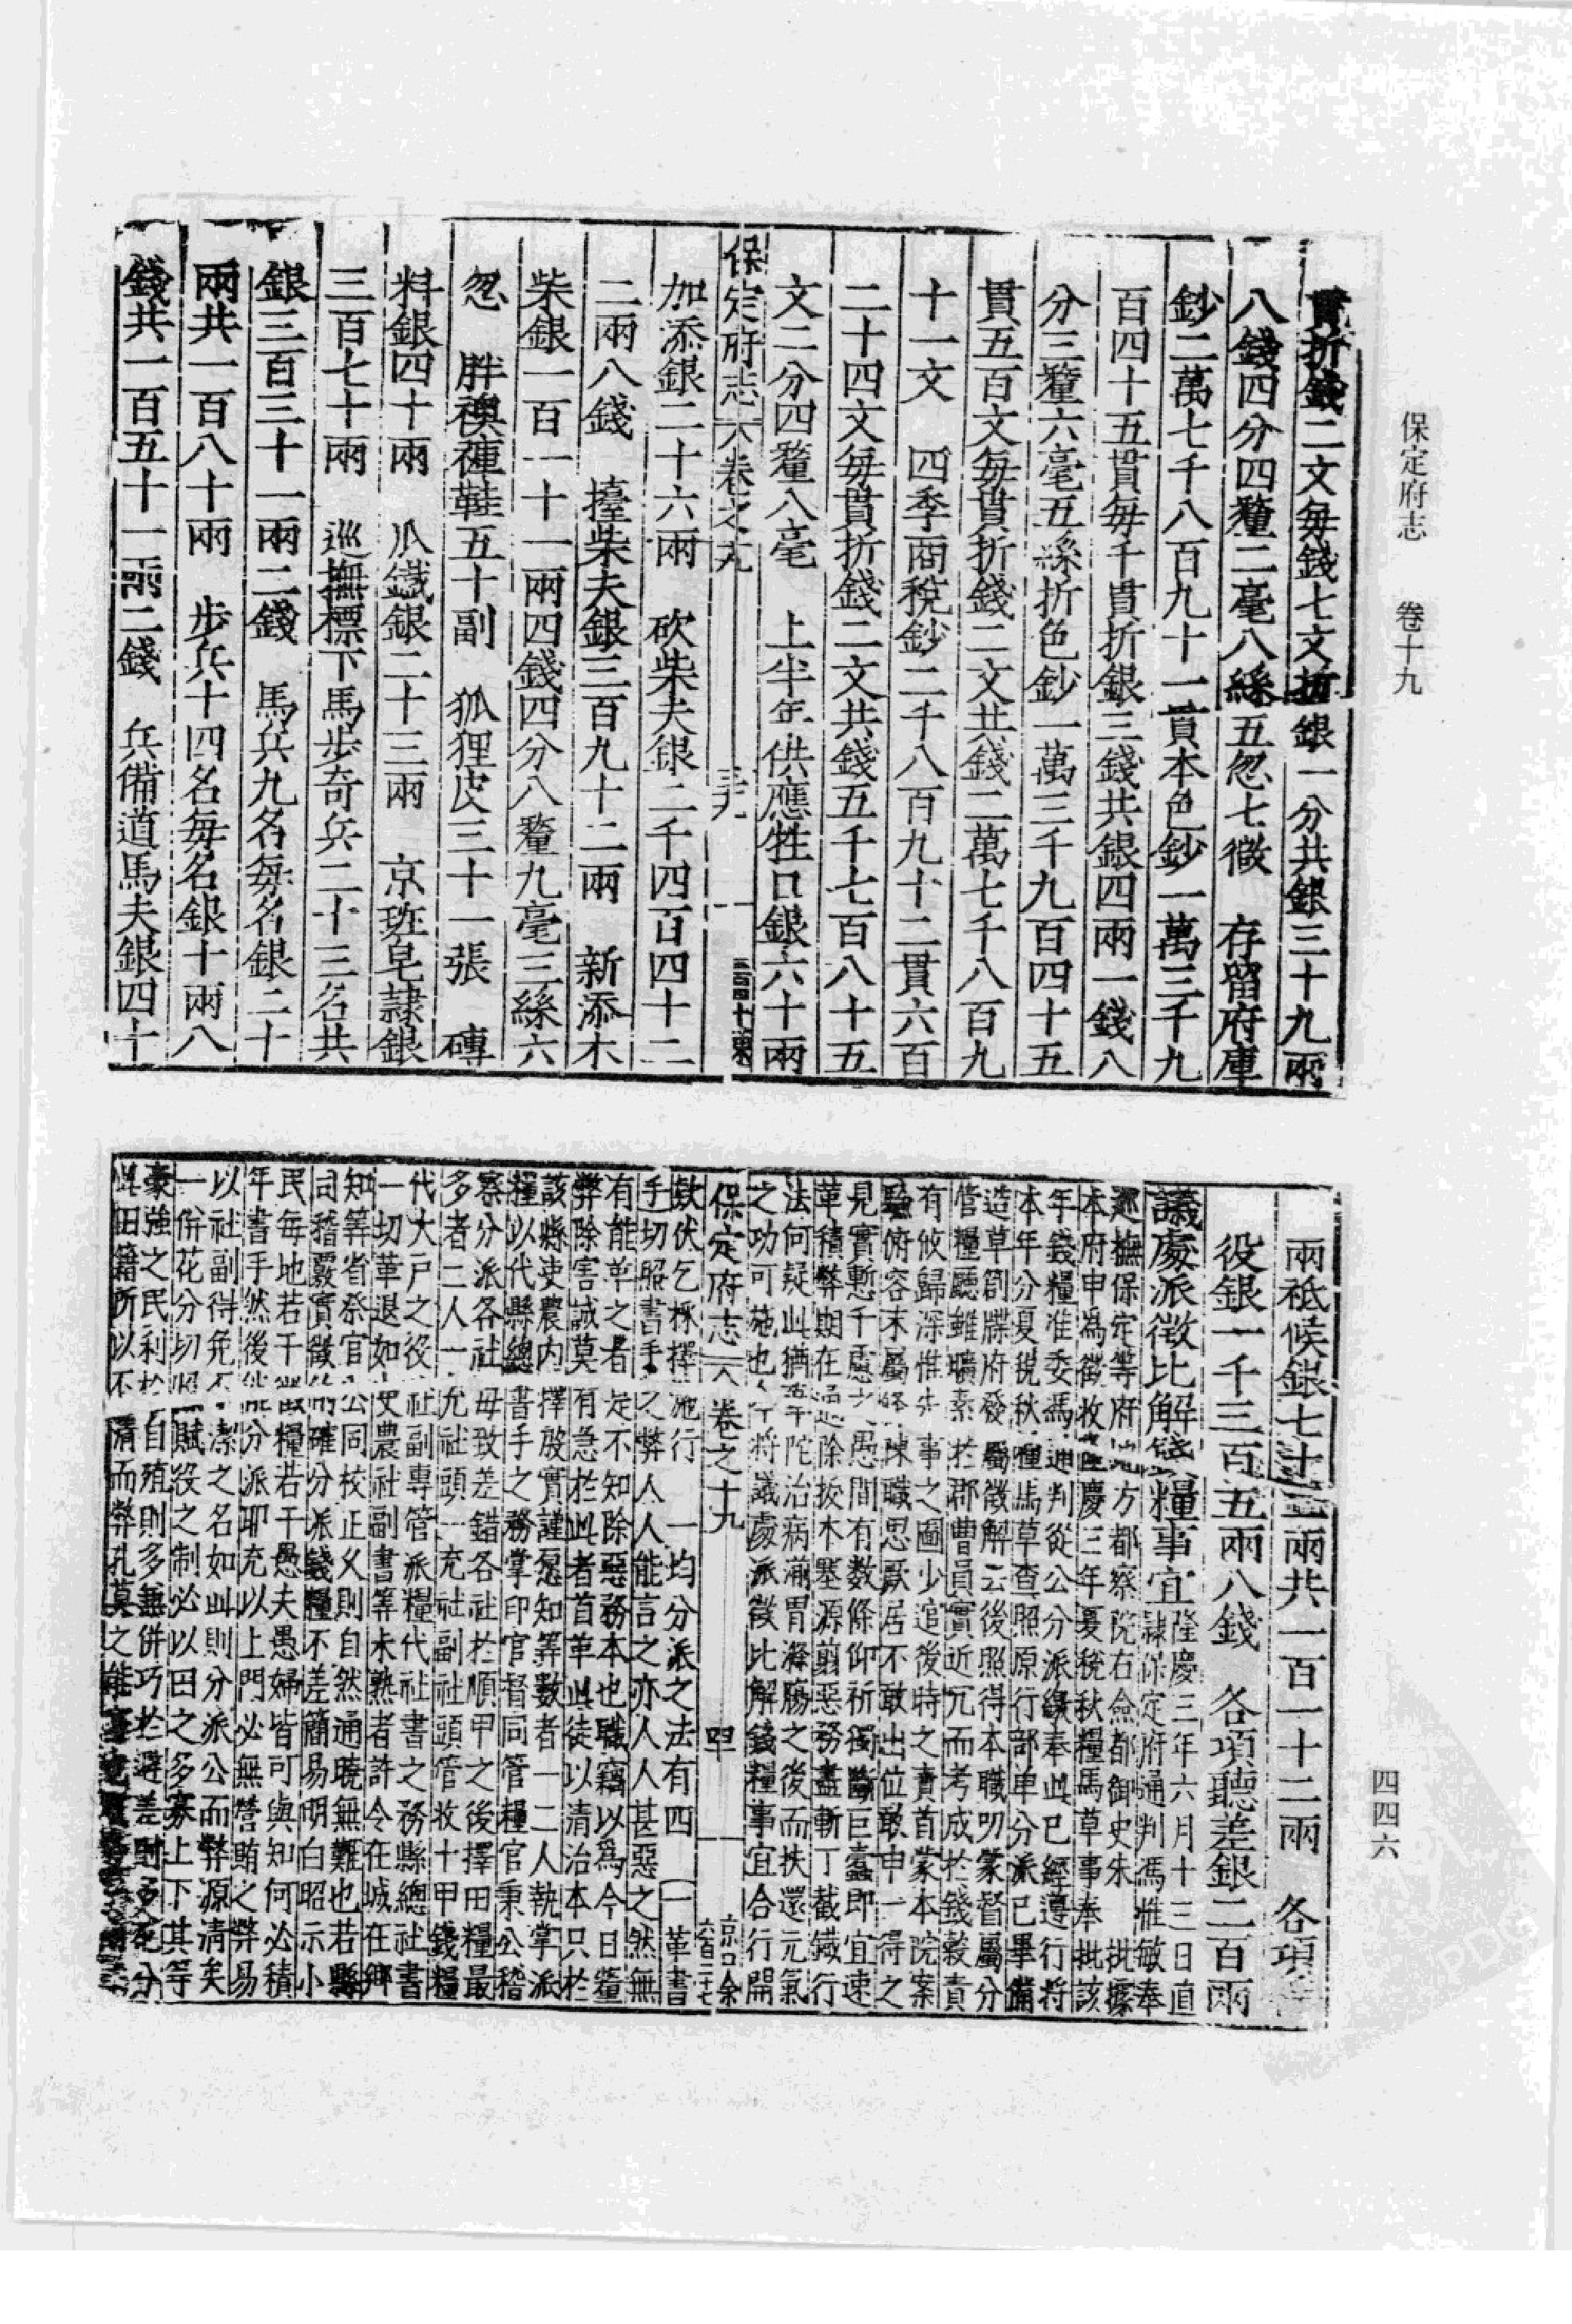 保定府志　卷十九
貫折錢二文每錢七文折銀一分共銀三十九兩
八錢四分四釐二毫八絲五忽七微　存留府庫
鈔二萬七千八百九十一貫本色鈔一萬三千九
百四十五貫每千貫折銀三錢共銀四兩一錢八
分三釐六毫五絲折色鈔一萬三千九百四十五
貫五百文每貫折錢二文共錢二萬七千八百九
十一文　四季商稅鈔二千八百九十二貫六百
二十四文每貫折錢二文共錢五千七百八十五
文二分四釐八毫　上半年供應牲口銀六十兩
保定府志　卷之十九　三十九
加添銀二十六兩　砍柴夫銀二千四百四十二
二兩八錢　擡柴夫銀三百九十二兩　新添木
柴銀一百一十一兩四錢四分八釐九毫三絲六
忽　胖襖褲鞋五十副　狐狸皮三十一張　磚
料銀四十兩　爪鐵銀二十三兩　京班皂隸銀
三百七十兩　巡撫標下馬步奇兵二十三名共
銀三百三十一兩二錢　馬兵九名每名銀二十
兩共一百八十兩　步兵十四名每名銀十兩八
錢共一百五十一兩二錢　兵備道馬夫銀四十
兩祗候銀七十二兩共一百一十二兩　各項
役銀一千三百五兩八錢　各項聽差銀二百兩
議處派徵比解錢糧事宜
隆慶三年六月十三日直
隸保定府通判馮惟敏奉
巡撫保定等府地方都察院右僉都御史朱　批據
本府申為徵收隆慶三年夏稅秋糧馬草事奉批該
年錢糧准委馮通判從公分派繳奉此已經遵行將
本年分夏稅秋糧馬草查照原行部單分派已畢備
造草劄牒府發屬徵解云後照得本職叨蒙督屬分
管糧廳雖曠素於郡曹員實近冗而考成於錢穀責
有攸歸深惟先事之圖少逭後時之責首蒙本院案
驗俯容末屬條陳職思厥居不敢出位敢申一得之
見實慙千慮之愚間有數條仰祈獨斷巨蠹即宜速
革積弊期在迅除扳木塞源剪惡務盡斬丁截鐵行
法何疑此猶華陀治病湔胃滌腸之後而扶還元氣
之功可施也今將議處派徵比解錢糧事宜合行開
保定府志　卷之十九　四十
欵伏乞採擇施行　一均分派之法有四　一革書
手切照書手之弊人人能言之亦人人甚惡之然無
有能革之者是不知除惡務本也職竊以為今日釐
弊除害誠莫有急於此者首革此徒以清治本只於
該縣吏農內擇殷實謹愿知筭數者一二人執掌派
糧以代縣總書手之務掌印官督同管糧官秉公稽
察分派各社毋致差錯各社於順甲之後擇田糧最
多者二人一允社頭一充社副社頭管收十甲錢糧
代大戶之役社副專管派糧代社書之務縣總社書
一切革退如吏農社副書筭未熟者許令在城在鄉
知筭省祭官公同校正乆則自然通曉無難也若縣
司稽覈實徵的確分派錢糧不差簡易明白昭示小
民每地若干徵糧若干愚夫愚婦皆可與知何必積
年書手然後能分派耶充以上門必無營賄之弊易
以社副得免不潔之名如此則分派公而弊源清矣
一併花分切照賦役之制必以田之多寡上下其等
豪強之民利於自殖則多兼併巧於避差則多花分
此田籍所以不清而弊孔莫之能
四四六